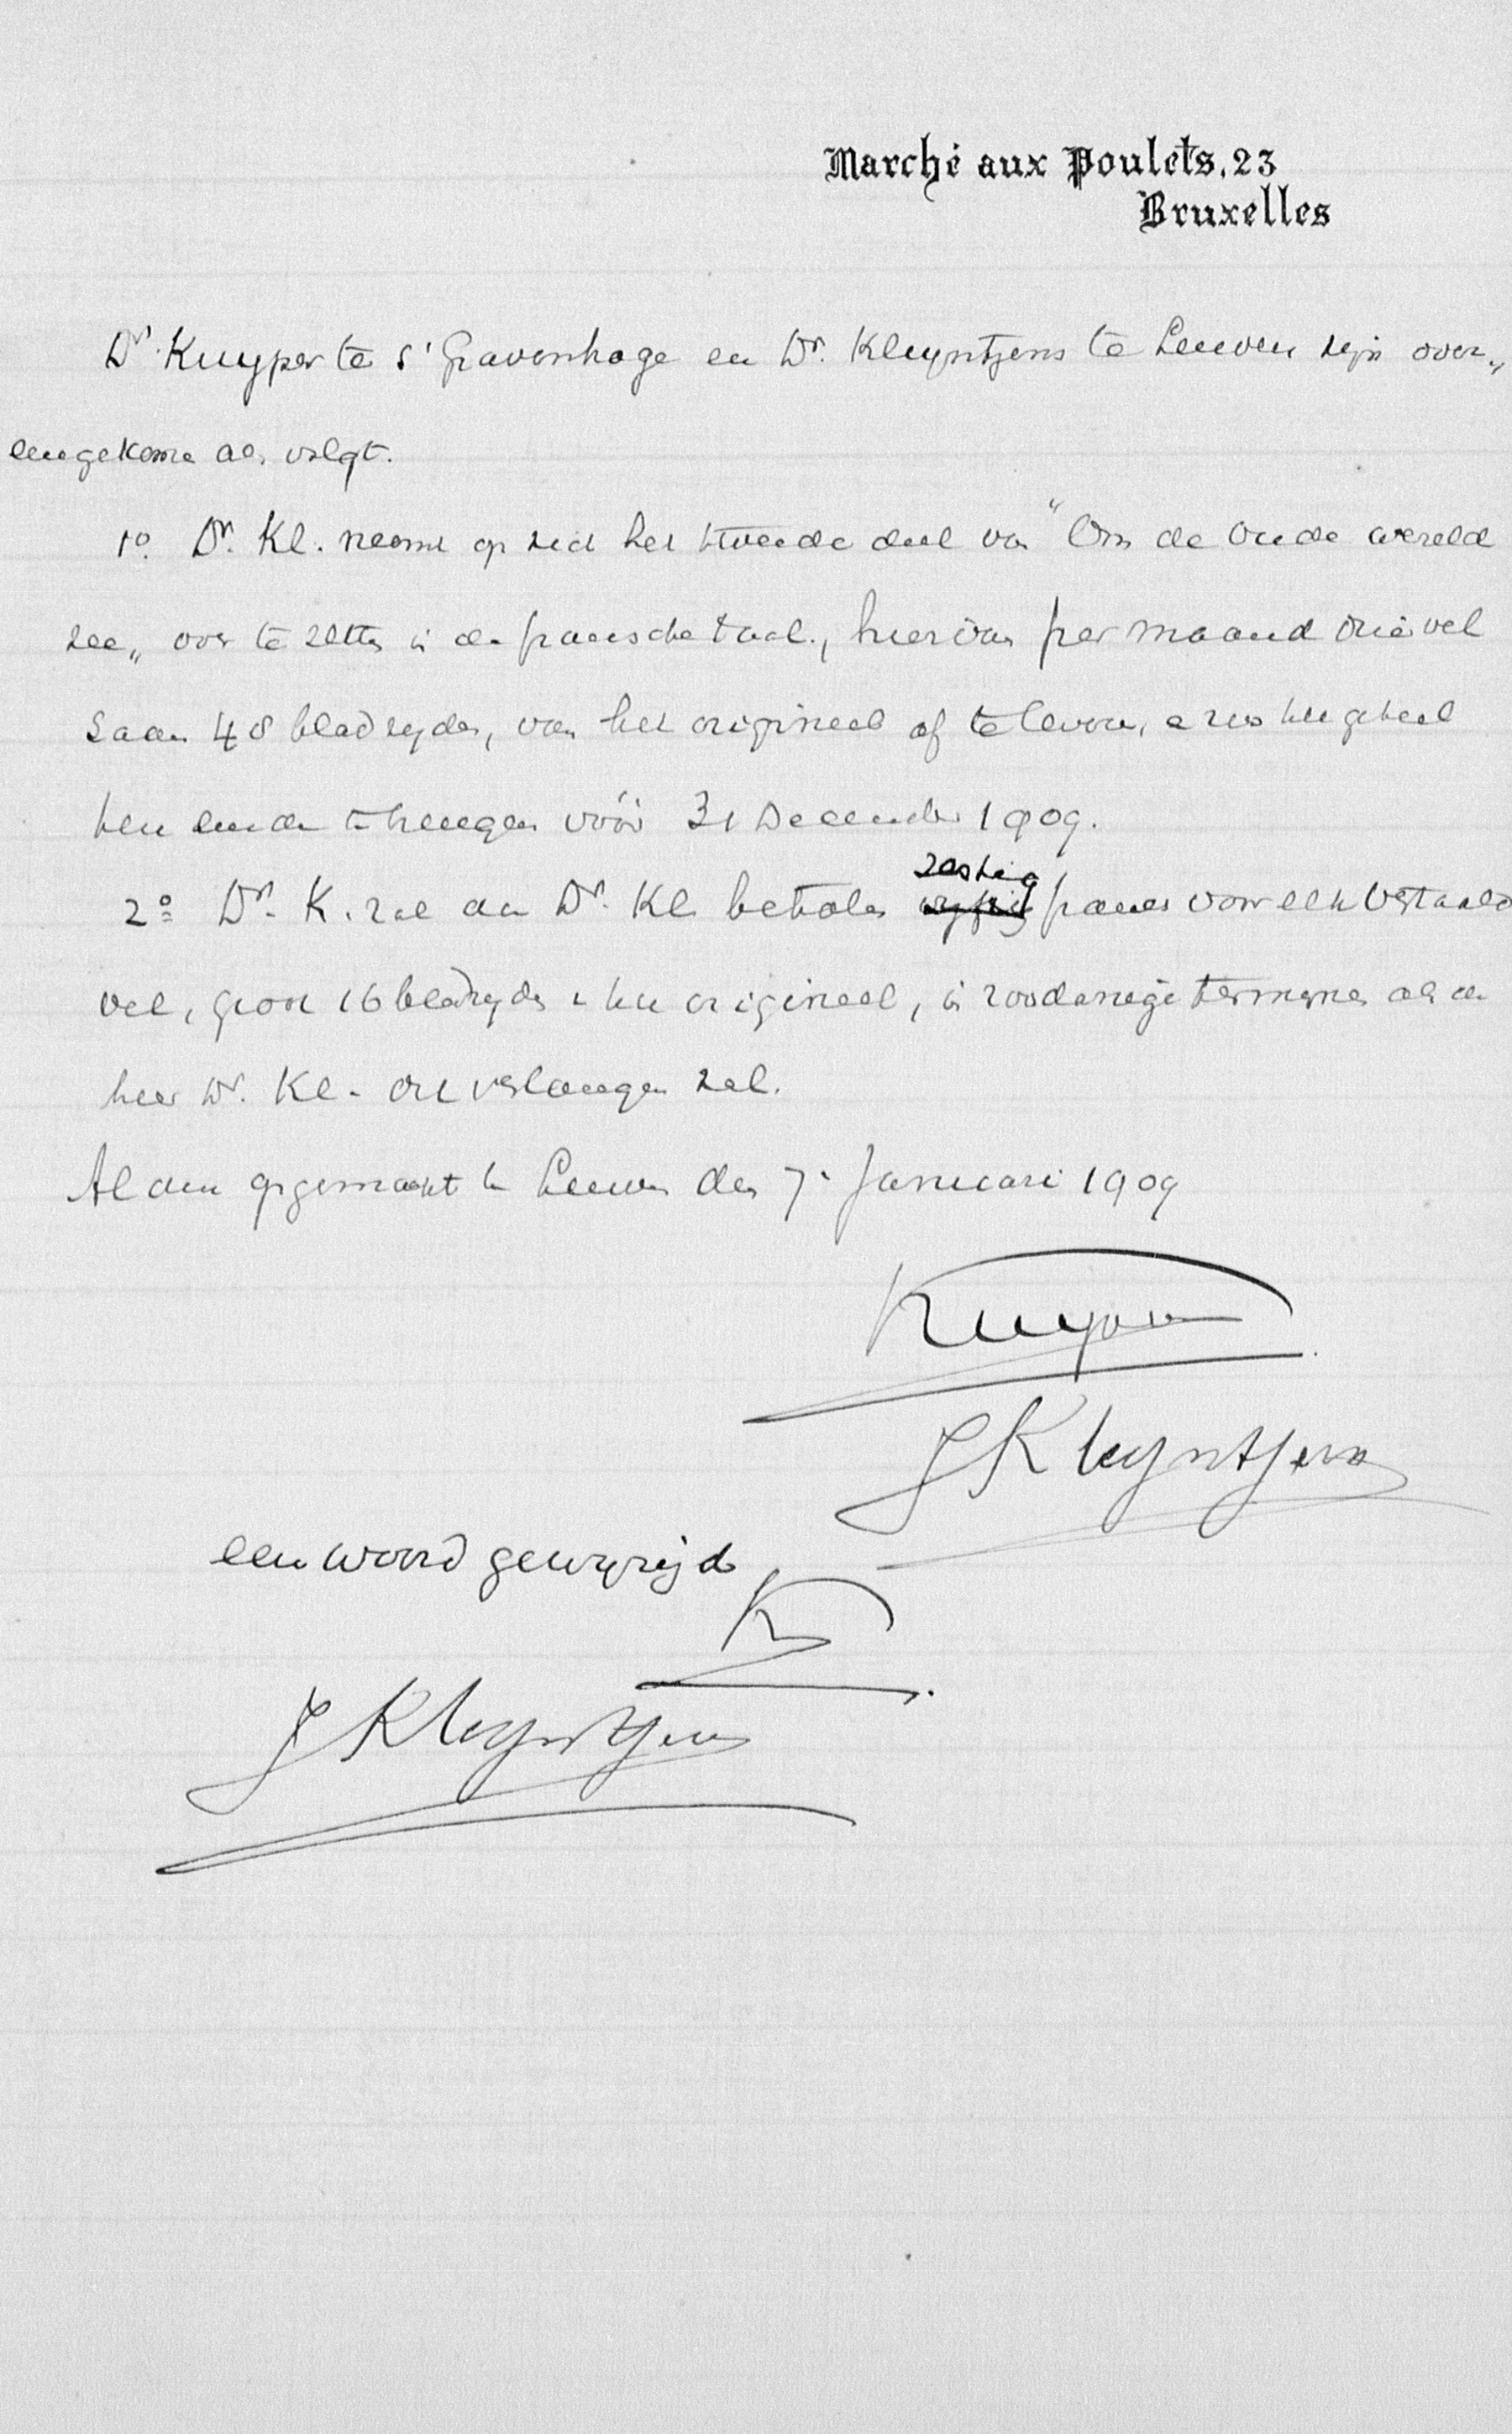 Marché aux Poulets. 23
Bruxelles
Dr. Kuyper te s' Gravenhage en Dr. Kleyntjens te Leuven zijn over„
eengekomen als volgt.
1o. Dr. Kl. neemt op zich het tweede deel van "Om de Oude wereld
zee„ over te zetten in de fransche taal, hiervan per maand drie vel
zaan 48 bladzyden, van het origineel af te leveren, en zoo het geheel
ten einde te brengen vóór 31 December 1909.
2o Dr. K. zal aan Dr. Kl. betalen zestig
vyftig francs voor elk vertaald
vel, groot 16 bladzyden in het origineel, in zoodanige termynen als de
heer Dr. Kl. dit verlangen zal.
Aldus opgemaakt te Leuven den 7. Januari 1909
Kuyper
J Kleyntjens
een woord gewyzigd
K
J Kleyntjens